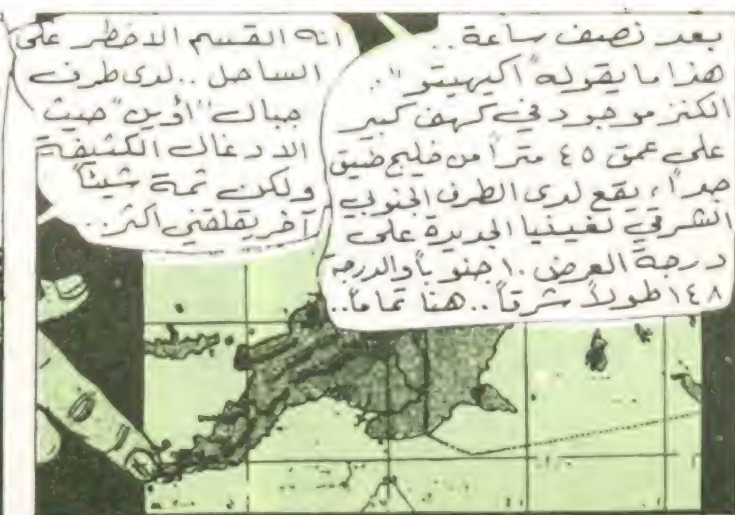 بعد نصف ساعة..
هذا ما يقوله "اكيهيتو"..
الكنز موجود في كهف كبير
على عمق ٤٥ متراً من خليج ضيق
جداً، يقع لدى الطرف الجنوبي
الشرقي لغينيا الجديدة على
درجة العرض ١٠ جنوباً والدرجة
١٤٨ طولاً شرقاً.. هنا تماماً..
انه القسم الاخطر على
الساحل.. لدى طرف
جبال "اوين" حيث
الادغال الكثيفة
ولكن ثمة شيئاً
آخر يقلقني اكثر..